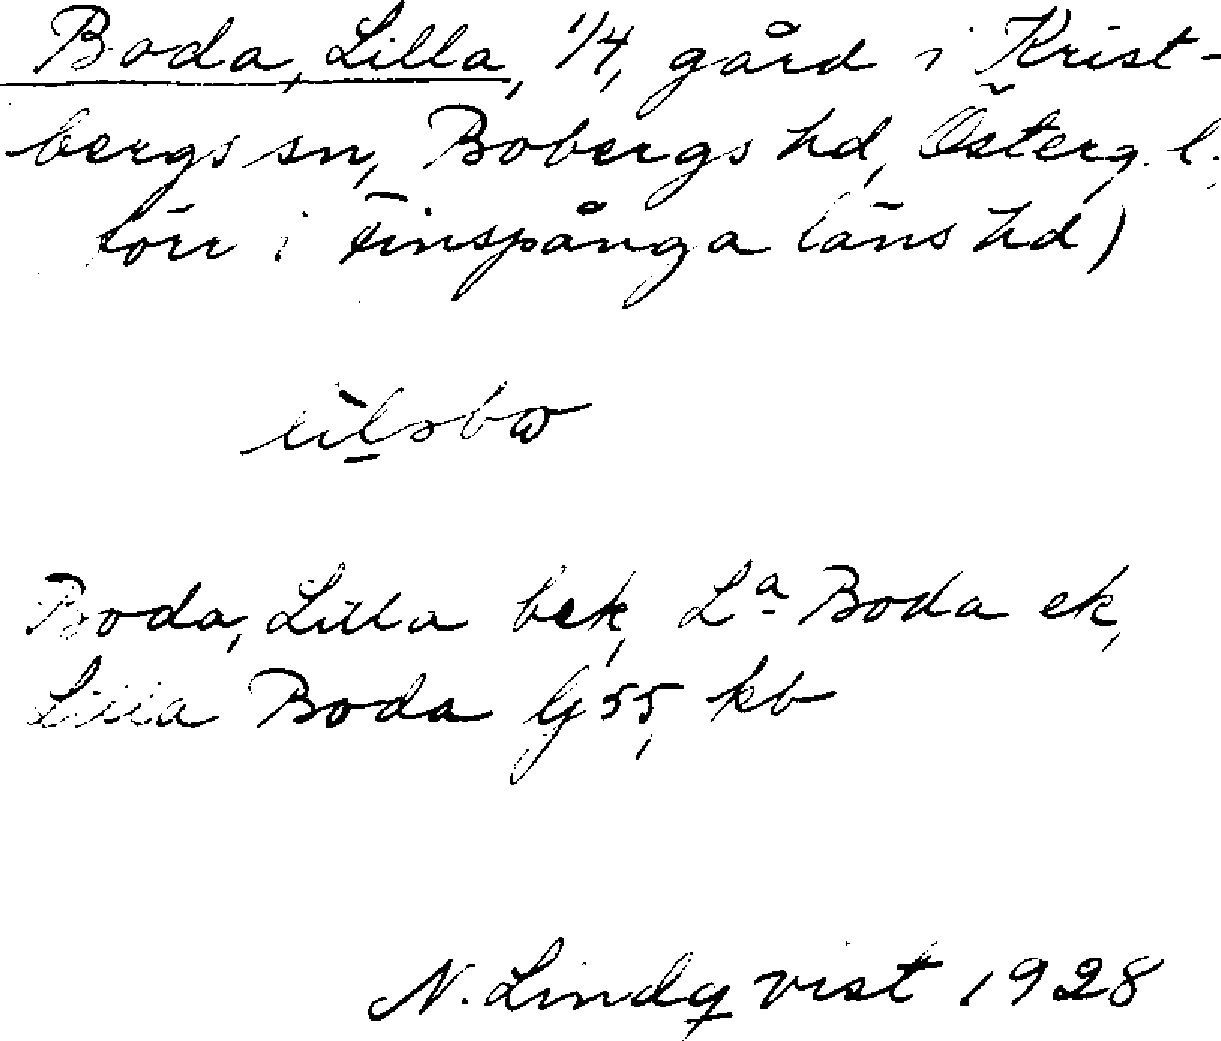 Boda, Lilla, 1/4, gård i Krist-
bergs sn, Bobergs hd, Österg. l.
förr i Finspånga läns hd)
Boda, Lilla bek, La Boda ek,
Lilla Boda Gj 55, kb
N. Lindqvist 1928